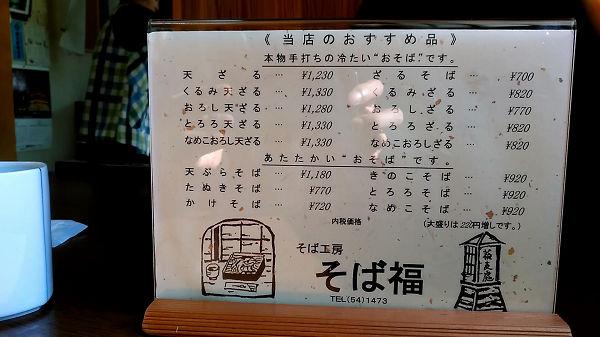 《当店のおすすめ品》
本物手打ちの冷たい“おそば”です。
天ざる … ¥1,230 ざるそば … ¥700
くるみ天ざる … ¥1,330 くるみざる … ¥820
おろし天ざる … ¥1,280 おろしざる … ¥770
とろろ天ざる … ¥1,330 とろろざる … ¥820
なめこおろし天ざる … ¥1,330 なめこおろしざる … ¥820
あたたかい“おそば”です。
天ぷらそば … ¥1,180 きのこそば … ¥920
たぬきそば … ¥770 とろろそば … ¥920
かけそば … ¥720 なめこそば … ¥920
内税価格 (大盛りは220円増しです。)
そば工房
そば福
TEL(54)1473